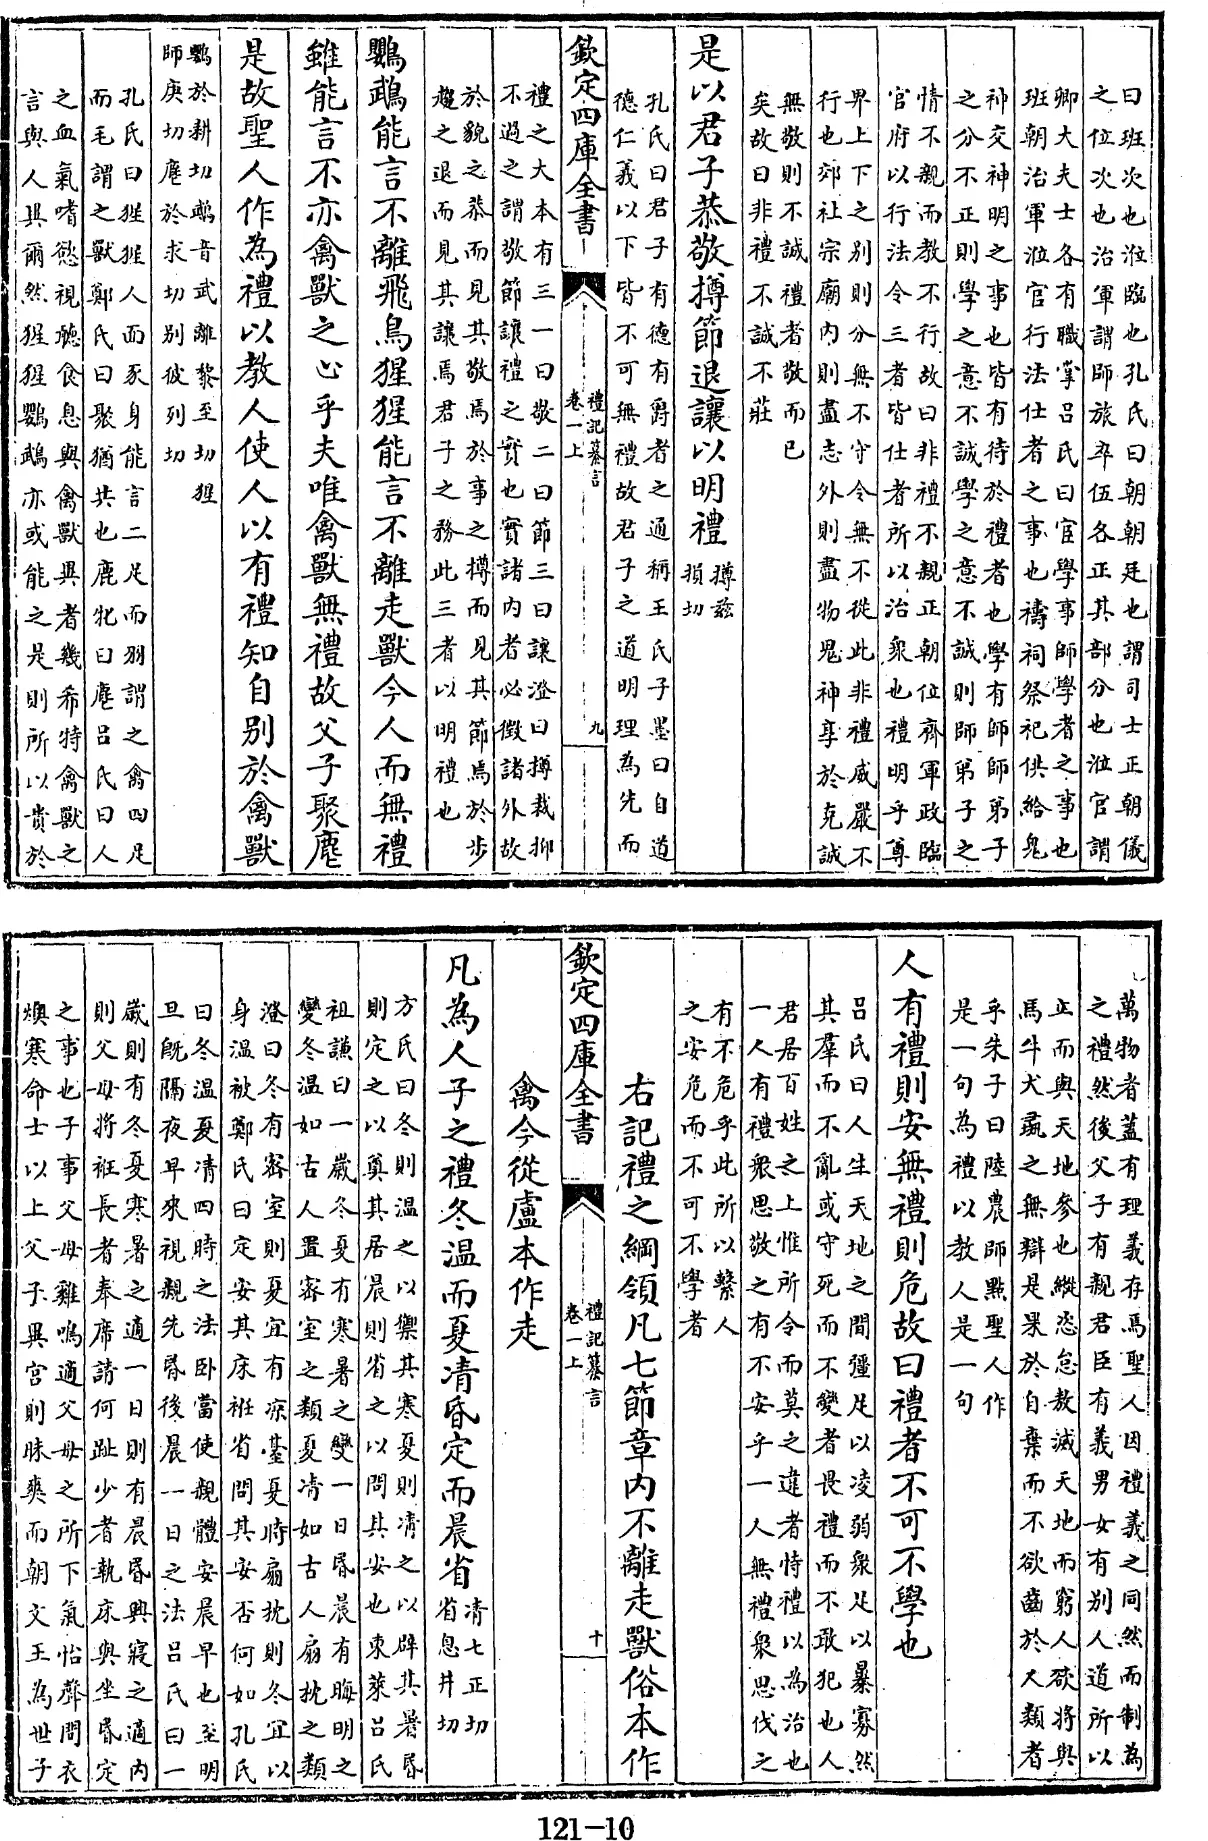 曰班次也涖臨也孔氏曰朝朝廷也謂司士正朝儀
之位次也治軍謂師旅卒伍各正其部分也涖官謂
卿大夫士各有職掌呂氏曰宦學事師學者之事也
班朝治軍涖官行法仕者之事也禱祠祭祀供給鬼
神交神明之事也皆有待於禮者也學有師師弟子
之分不正則學之意不誠學之意不誠則師弟子之
情不親而教不行故曰非禮不親正朝位齊軍政臨
官府以行法令三者皆仕者所以治衆也禮明乎尊
卑上下之别則分無不守令無不從此非禮威嚴不
行也郊社宗廟内則盡志外則盡物鬼神享於克誠
無敬則不誠禮者敬而已
矣故曰非禮不誠不莊
是以君子恭敬撙節退讓以明禮撙兹損切
孔氏曰君子有德有爵者之通稱王氏子墨曰自道
德仁義以下皆不可無禮故君子之道明理為先而
欽定四庫全書
禮記纂言
卷一上
九
禮之大本有三一曰敬二曰節三曰讓澄曰撙裁抑
不過之謂敬節讓禮之實也實諸内者必徵諸外故
於貌之恭而見其敬焉於事之撙而見其節焉於步
趨之退而見其讓焉君子之務此三者以明禮也
鸚鵡能言不離飛鳥猩猩能言不離走獸今人而無禮
雖能言不亦禽獸之心乎夫唯禽獸無禮故父子聚麀
是故聖人作為禮以教人使人以有禮知自别於禽獸
鸚於耕切鵡音武離黎至切猩
師庚切麀於求切别彼列切
孔氏曰猩猩人面豕身能言二足而羽謂之禽四足
而毛謂之獸鄭氏曰聚猶共也鹿牝曰麀呂氏曰人
之血氣嗜慾視聽食息與禽獸異者幾希特禽獸之
言與人異爾然猩猩鸚鵡亦或能之是則所以貴於
萬物者蓋有理義存焉聖人因禮義之同然而制為
之禮然後父子有親君臣有義男女有别人道所以
立而與天地參也縱恣怠敖滅天地而窮人欲將與
馬牛犬彘之無辯是果於自棄而不欲齒於人類者
乎朱子曰陸農師點聖人作
是一句為禮以教人是一句
人有禮則安無禮則危故曰禮者不可不學也
呂氏曰人生天地之間彊足以凌弱衆足以暴寡然
其羣而不亂或守死而不變者畏禮而不敢犯也人
君居百姓之上惟所令而莫之違者恃禮以為治也
一人有禮衆思敬之有不安乎一人無禮衆思伐之
有不危乎此所以繫人
之安危而不可不學者
右記禮之綱領凡七節章内不離走獸俗本作
禽今從盧本作走
欽定四庫全書
禮記纂言
卷一上
十
凡為人子之禮冬温而夏凊昏定而晨省凊七正切省息井切
方氏曰冬則温之以禦其寒夏則凊之以辟其暑昏
則定之以奠其居晨則省之以問其安也東萊呂氏
祖謙曰一歲冬夏有寒暑之變一日昏晨有晦明之
變冬温如古人置密室之類夏凊如古人扇枕之類
澄曰冬有密室則夏宜有凉臺夏時扇枕則冬宜以
身温被鄭氏曰定安其床衽省問其安否何如孔氏
曰冬温夏凊四時之法卧當使親體安晨早也至明
旦既隔夜早來視親先昏後晨一日之法呂氏曰一
歲則有冬夏寒暑之適一日則有晨昏興寢之適内
則父母將衽長者奉席請何趾少者執床與坐昏定
之事也子事父母雞鳴適父母之所下氣怡聲問衣
燠寒命士以上父子異宫則昧爽而朝文王為世子
121-10